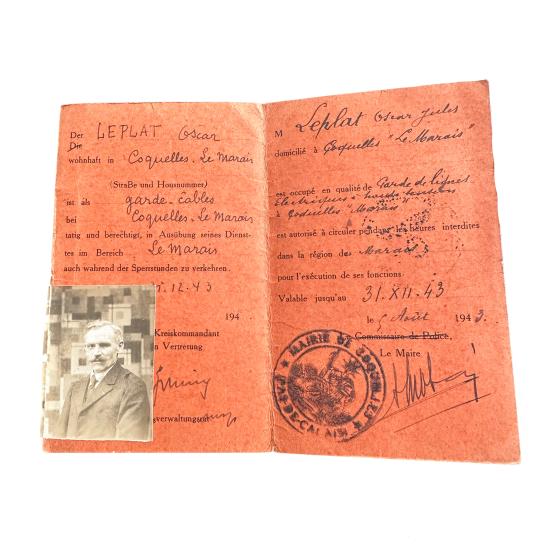 Der LEPLAT Oscar
Die
wohnhaft in Coquelles. Le Marais
(Straße und Hausnummer)
ist als garde-cables
bei Coquelles. Le Marais
tatig und berechtigt, in Ausübung seines Dienst-
tes im Bereich Le Marais
auch wahrend der Sperrstunden zu verkehren.
.12.43
194
Kreiskommandant
n Vertretung
sverwaltungsrat
M Leplat Oscar Jules
domicilié à Coquelles "Le Marais"
est occupé en qualité de Garde de lignes
Electriques à haute tension
à Coquelles "Marais"
est autorisé à circuler pendant les heures interdites
dans la région des Marais
pour l'exécution de ses fonctions.
Valable jusqu'au 31.XII.43
le 5 Août 1943.
Commissaire de Police,
Le Maire
MAIRIE DE COQUELLES
PAS-DE-CALAIS